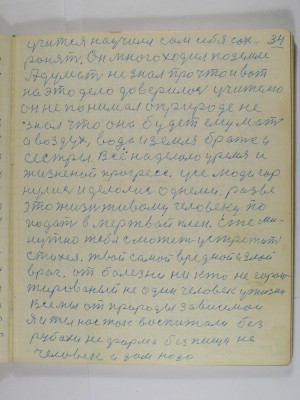 34
учится научил сам себя сох
ранять. Он много ходил по земле
Я думать не знал про что и вот
на это дело доверился учителю
он не понимал о природе не
знал что она будет ему мать
а воздух, вода и земля братья
сестры. Всё наделало время и
жизненый прогресс. усе люди
и делолис однеми. разве
это жизь живому человеку по
падать в мертвай плен.
минутно тебя сможит устретить
стихея. твой самой вредной злой
враг. от болезни ни кто не
не один человек у жизни
Все мы от природы зависемаи
Я и тел настык воспитали без
рубахи не форма без пищи не
человек а зам надо